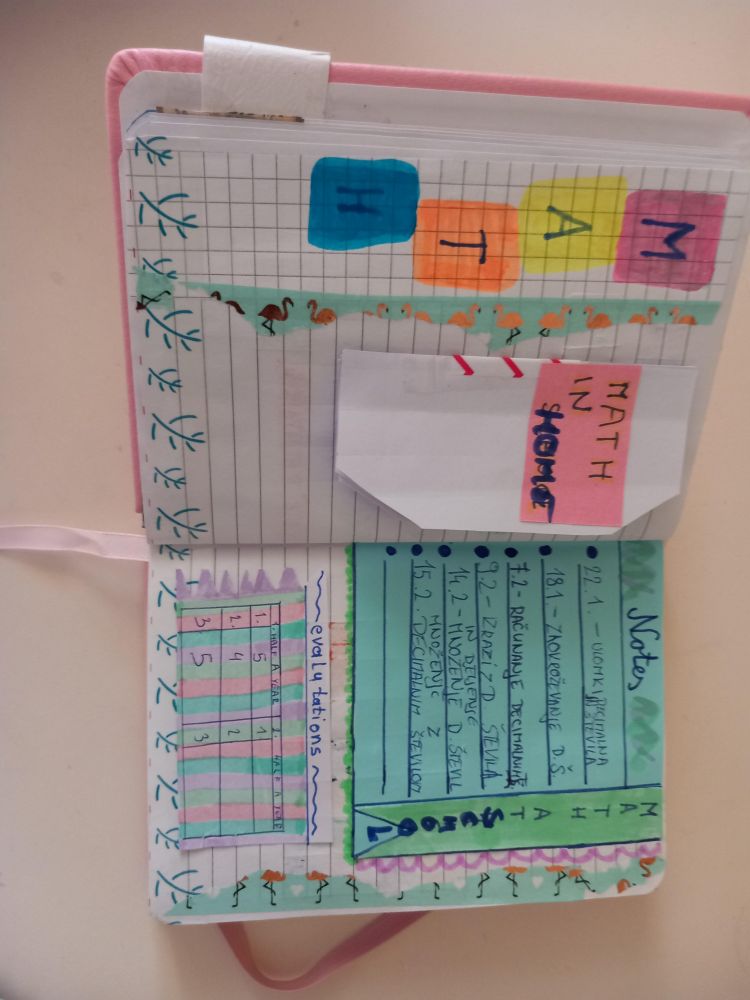 MATH
MATH
IN
HOME
Notes
22.1. - ULOMKI DECIMALNA
ŠTEVILA
18.1 - ZAOKROŽEVANJE D.Š.
7.2 - RAČUNANJE DECIMALNIH
9.2 - IZRAZI Z D. ŠTEVILA
14.2 - MNOŽENJE D. ŠTEVIL
IN DELJENJE
15.2. MNOŽENJE Z
DECIMALNIM ŠTEVILOM
MATH AT SCHOOL
evalutations
1. HALF A YEAR 2. HALF A YEAR
1. 5 1
2. 4 2
3. 5 3